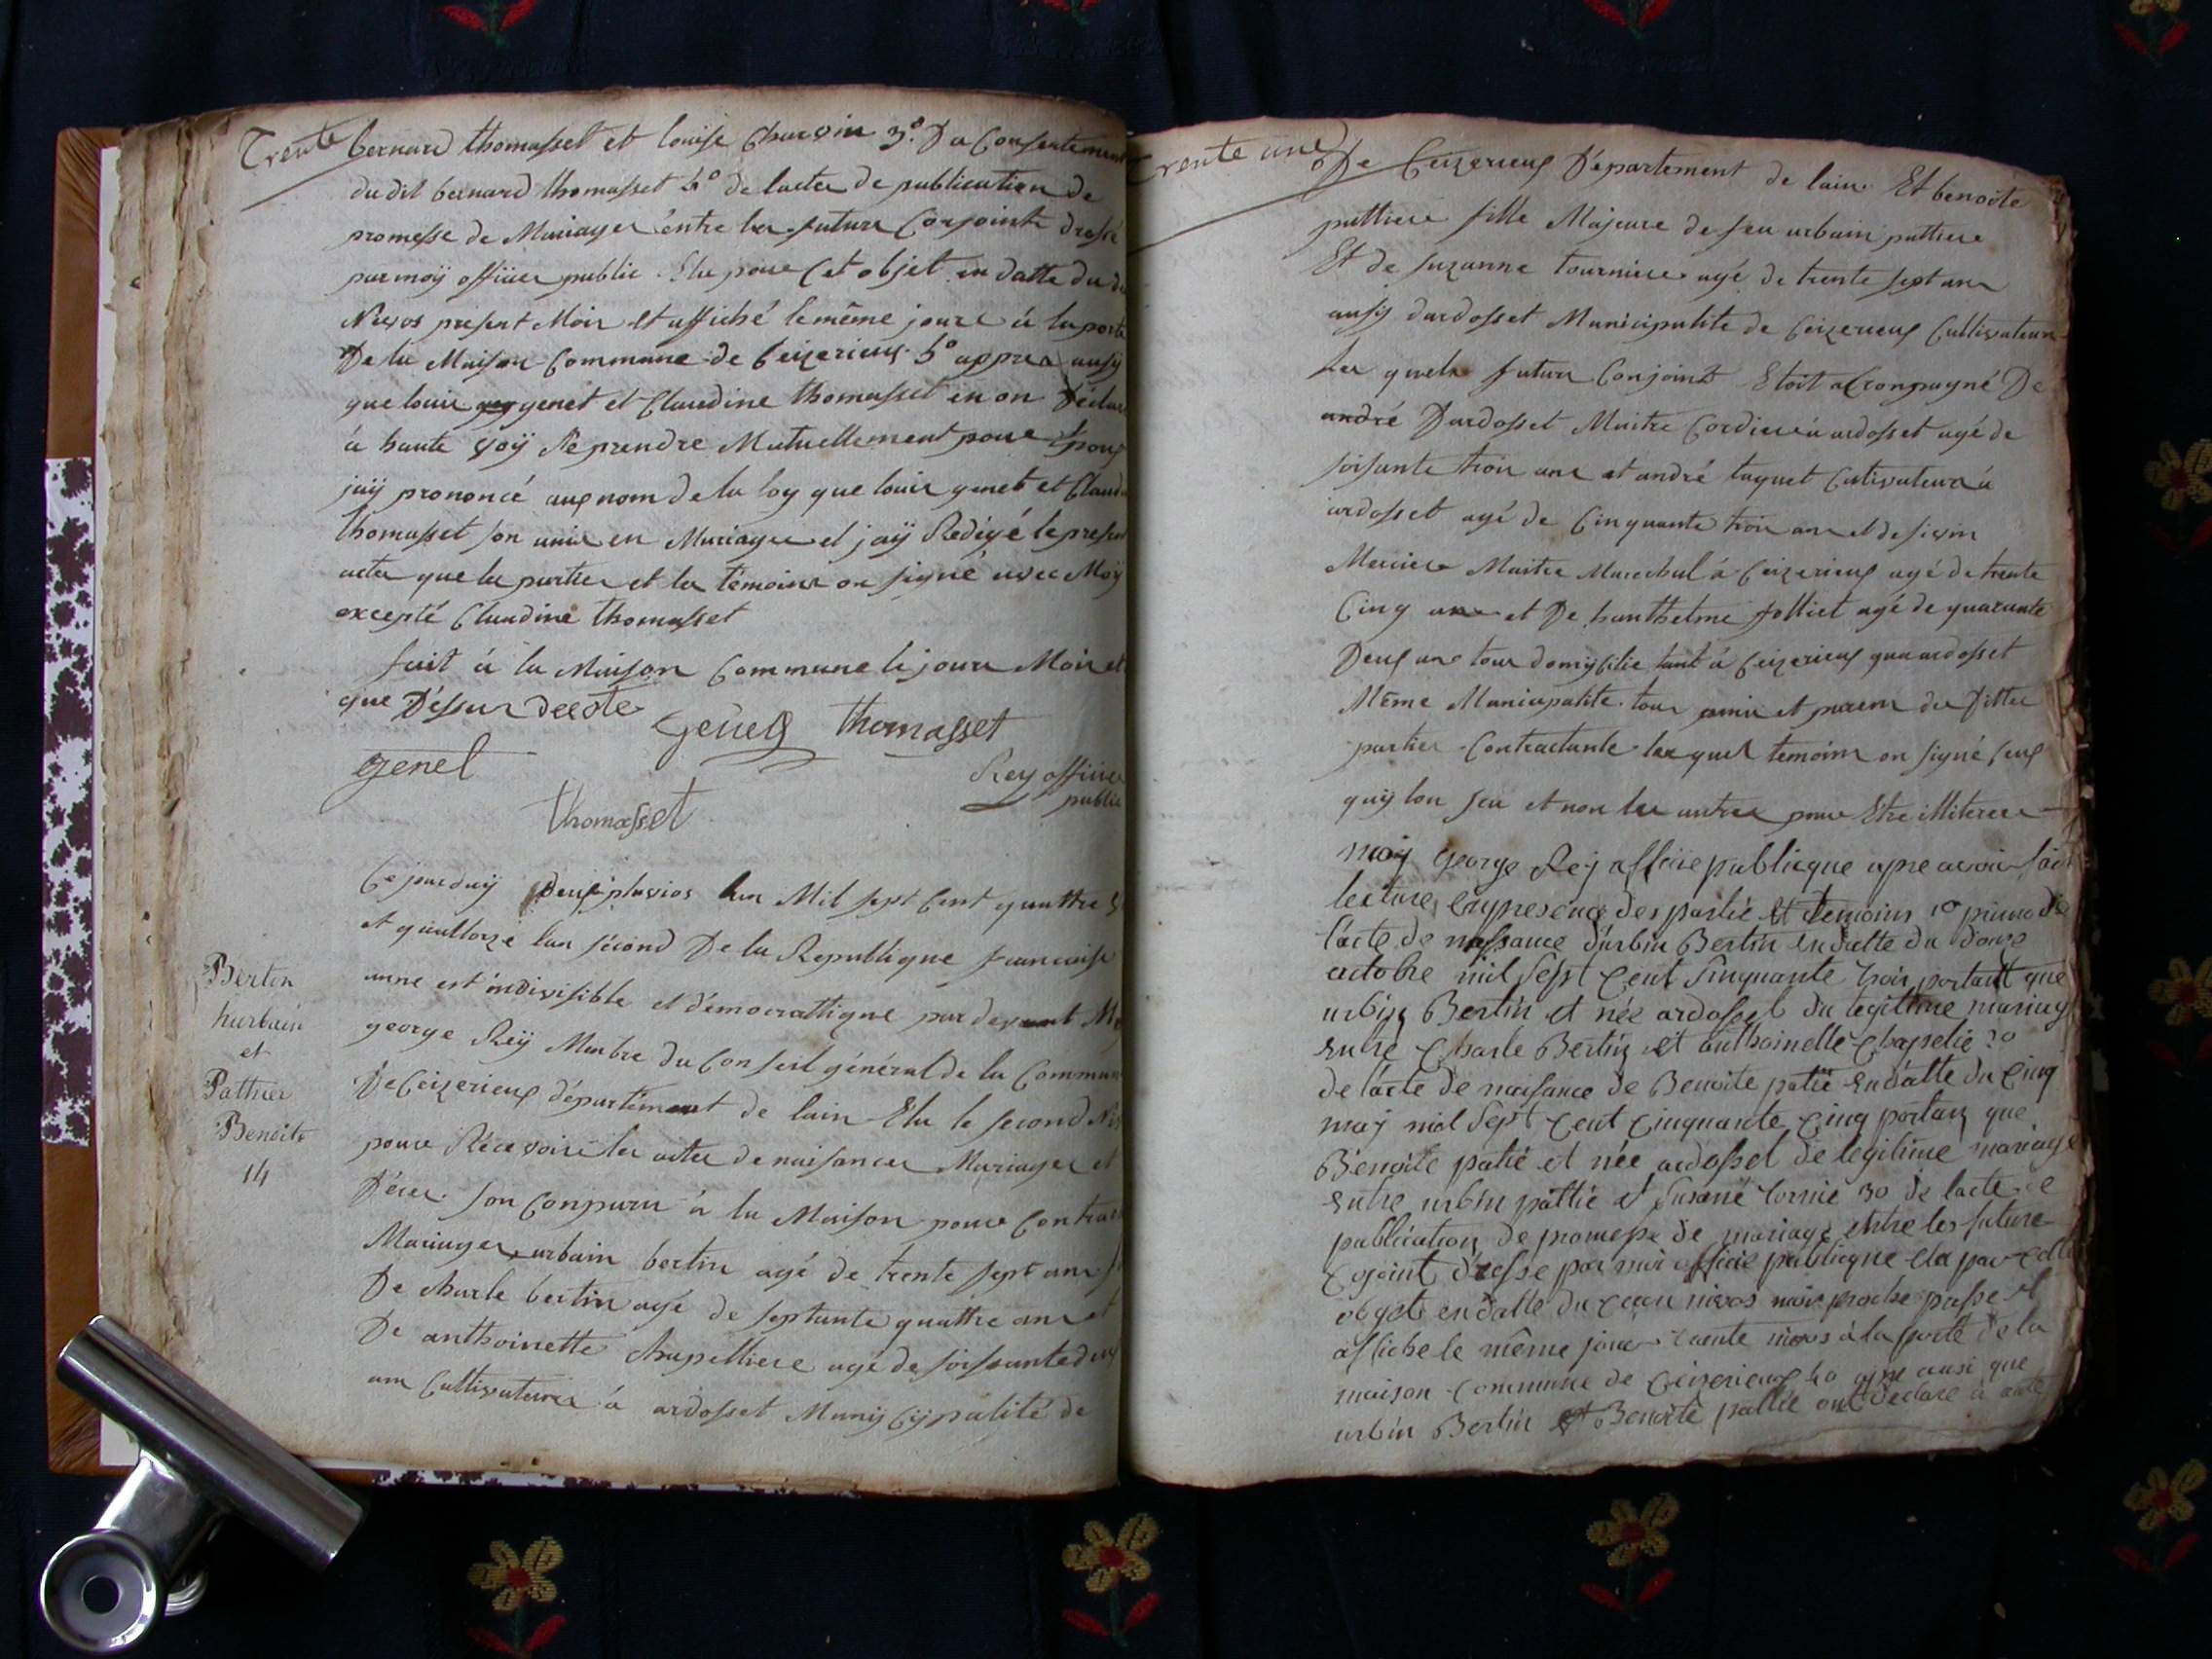 Trente
bernard thomasset et louise Charvin 3.° Du Consentement
du dit bernard thomasset 4° de lacte de publication de
promesse de Mariage entre les futurs Conjoints dressé
par moÿ officier public Elu pour Cet objet en datte du
Nivos present Mois et affiché le même jour à la porte
De la Maison Commune de Ceizerieux 5° appres ausy
que louis genet et Claudine thomasset en on Déclar
à haute Voÿ Se prendre Mutuellement pour Epoux
jaÿ prononcé aux nom de la loy que louis genet et Claud
thomasset son unis en Mariage et jaÿ Redigé le present
acte que les parties et les témoins on signé avec Moÿ
excepté Claudine thomasset
fait à la Maison Commune le jour Mois et
que Déssus
genet thomasset
genet
Rey officier
public
thomasset
Ce jourduÿ Deux pluvios lan Mil sept Cent quattre
et quattorze lan sécond De la Republique francaise
unne est indivisible et démocrattique par devant
george Reÿ Menbre du Conseil général de la Commun
De Ceizerieux département de lain Elu le second
pour Récevoire les actes de naisances Mariages et
Déces son Conparu à la Maison pour Contrac
Mariages urbain bertin agé de trente sept ans
De charle bertin agé de septante quattre ans et
De anthoinette chapelliere agé de soissante deux
ans Cultivateurs à ardosset Municÿpalité de
Bertin
hurbain
et
Pathier
Benoite
14
Trente une
De Ceizerieux Département de lain Et benoite
pattiere fille Majeure de feu urbain pattiere
Et de suzanne tourniere agé de trente sept ans
ausÿ dardosset Municipalite de Ceizerieux Cultivateurs
Les quels futurs Conjoint Etoit acConpagné De
andré Dardosset Maitre Cordier à ardosset agé de
soisante trois ans et andré taquet Cultivateur à
ardosset agé de Cinquante trois ans et de
Merciere Maitre Marechal à Ceizerieux agé de trente
Cinq ans et De hanthelme folliet agé de quarante
Deux ans tous domÿcilié tant à Ceizerieux qua ardosset
Même Municipalite tous amis et parens des Dittes
parties Contractante lesquel temoins on signé ceux
quÿ lon seu et non les autres pour Etre illiteres
moÿ george Reÿ officie publicque apre avoir fait
lecture en presence des partie et temoins 1° de
lacte de nassance durbin Bertin en datte du douze
octobre mil Sept Cent Sinquante trois portant que
urbin Bertin et née ardosset du legitime mariage
entre Charle Bertin et anthoinette Chapelie 2°
de lacte de naisance de Benoite patié en datte du Cinq
maÿ mil Sept Cent Cinquante Cinq portan que
Bénoite patié et née ardosset de legitime mariage
entre urbin pattié et Susane tornié 3° de lacte de
publication de promesse de mariage entre les future
Cojoint dresse par moi officie publicque elu par cette
obget en datte du nivos mois proche passe et
affiche le même jour trante nivos à la porte de la
maison Commune de Ceizerieux 4° apre ausi que
urbin Bertin et Benoite pattié ont declare à aute